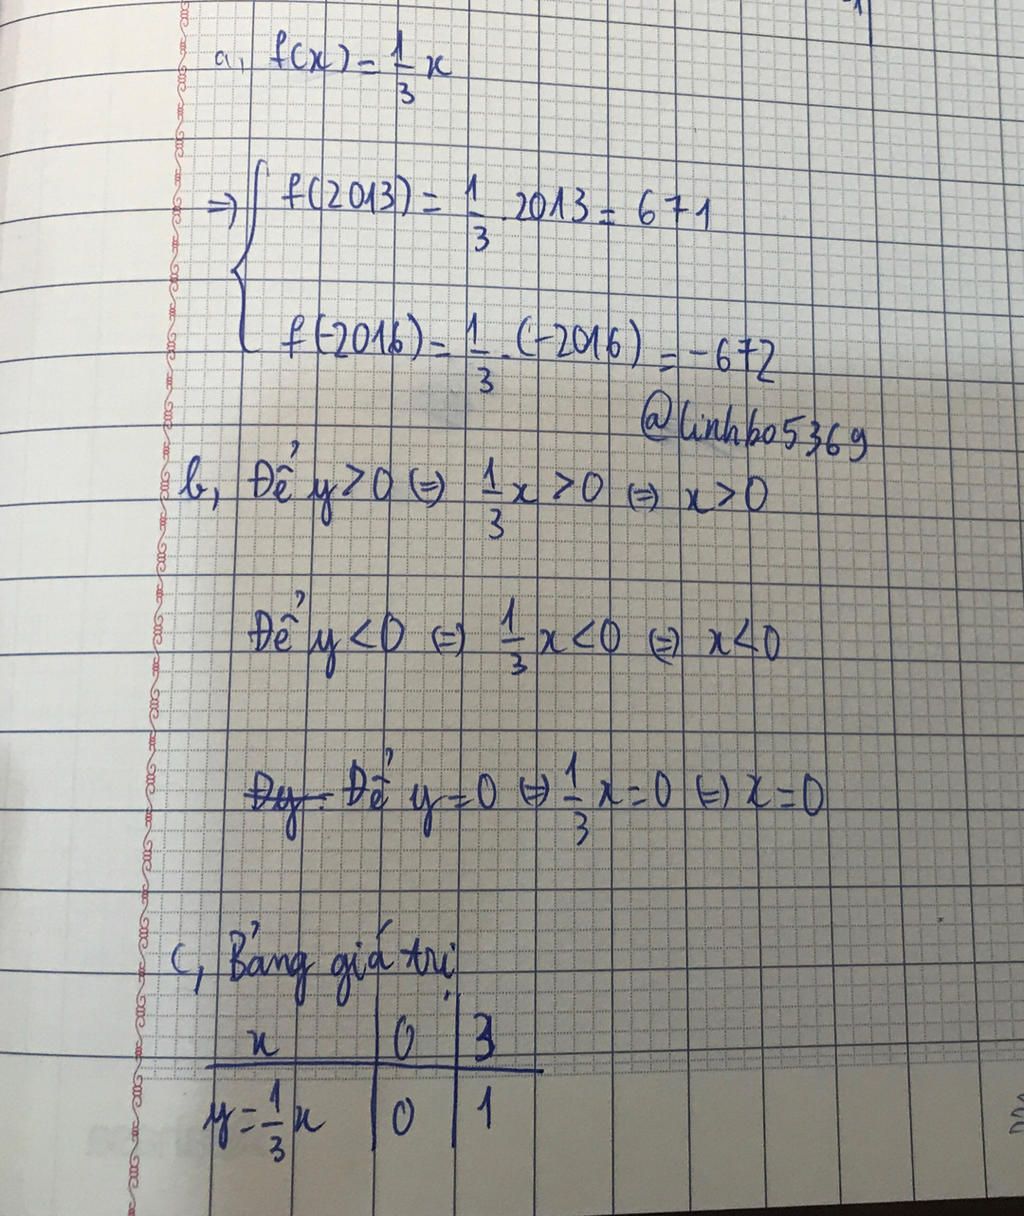 a, f(x) = 1/3 x
=> { f(2013) = 1/3 . 2013 = 671
f(-2016) = 1/3 . (-2016) = -672
@linhbo5369
b, Để y > 0 <=> 1/3 x > 0 <=> x > 0
Để y < 0 <=> 1/3 x < 0 <=> x < 0
Để y = 0 <=> 1/3 x = 0 <=> x = 0
c, Bảng giá trị
x | 0 | 3
y = 1/3 x | 0 | 1